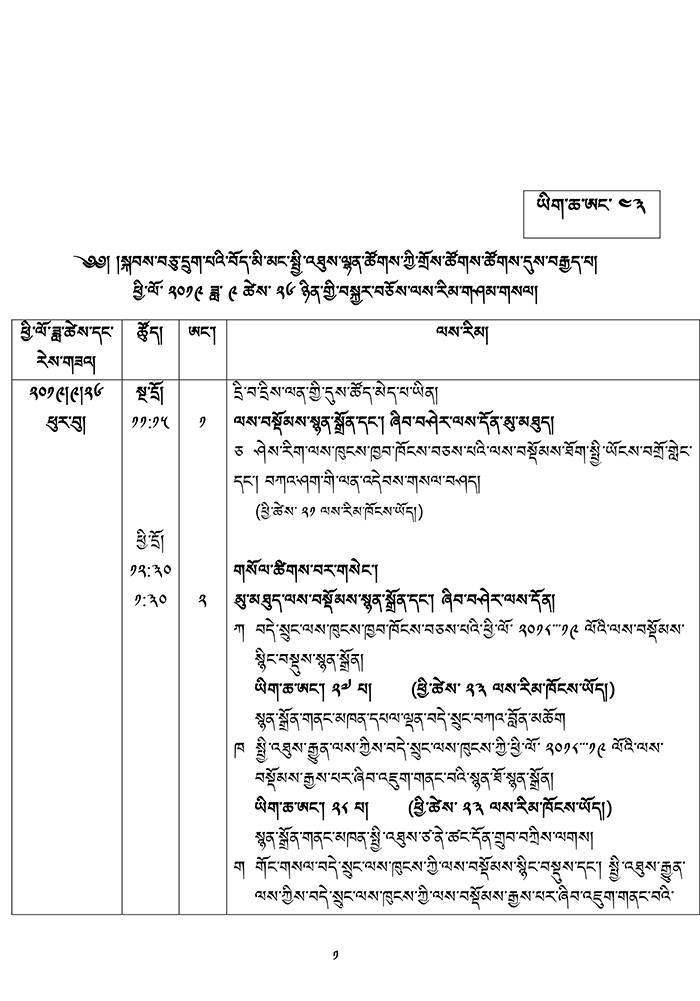 ཡིག་ཆ་ཨང་ ༤༣
༄༅། །སྐབས་བཅུ་དྲུག་པའི་བོད་མི་མང་སྤྱི་འཐུས་ལྷན་ཚོགས་ཀྱི་གྲོས་ཚོགས་ཚོགས་དུས་བརྒྱད་པ།
ཕྱི་ལོ་ ༢༠༡༩ ཟླ་ ༩ ཚེས་ ༢༦ ཉིན་གྱི་བསྐྱར་བཅོས་ལས་རིམ་གཤམ་གསལ།
ཕྱི་ལོ་ཟླ་ཚེས་དང་ ཚོུད། ཨང་། ལས་རིམ།
རེས་གཟའ།
༢༠༡༩།༩།༢༦ སྔ་དྲོ། དྲི་བ་དྲིས་ལན་གྱི་དུས་ཚོད་མེད་པ་ཡིན།
ཕུར་བུ། ༡༡:༡༥ ༡ ལས་བསྡོམས་སྙན་སྒྲོན་དང་། ཞིབ་བཤེར་ལས་དོན་མུ་མཐུད།
ཅ ཤེས་རིག་ལས་ཁུངས་ཁྱབ་ཁོངས་བཅས་པའི་ལས་བསྡོམས་ཐོག་སྤྱི་ཡོངས་བགྲོ་གླེང་
དང་། བཀའ་ཤག་གི་ལན་འདེབས་གསལ་བཤད།
(ཕྱི་ཚེས་ ༢༡ ལས་རིམ་ཁོངས་ཡོད།)
ཕྱི་དྲོ།
༡༢:༣༠ གསོལ་ཚིགས་བར་གསེང་།
༡:༣༠ ༢ མུ་མཐུད་ལས་བསྡོམས་སྙན་སྒྲོན་དང་། ཞིབ་བཤེར་ལས་དོན།
ཀ བདེ་སྲུང་ལས་ཁུངས་ཁྱབ་ཁོངས་བཅས་པའི་ཕྱི་ལོ་ ༢༠༡༨་་་༡༩ ལོའི་ལས་བསྡོམས་
སྙིང་བསྡུས་སྙན་སྒྲོན།
ཡིག་ཆ་ཨང་། ༢༧ པ། (ཕྱི་ཚེས་ ༢༣ ལས་རིམ་ཁོངས་ཡོད།)
སྙན་སྒྲོན་གནང་མཁན་དཔལ་ལྡན་བདེ་སྲུང་བཀའ་བློན་མཆོག
ཁ སྤྱི་འཐུས་རྒྱུན་ལས་ཀྱིས་བདེ་སྲུང་ལས་ཁུངས་ཀྱི་ཕྱི་ལོ་ ༢༠༡༨་་་༡༩ ལོའི་ལས་
བསྡོམས་རྒྱས་པར་ཞིབ་འཇུག་གནང་བའི་སྙན་ཐོ་སྙན་སྒྲོན།
ཡིག་ཆ་ཨང་། ༢༨ པ། (ཕྱི་ཚེས་ ༢༣ ལས་རིམ་ཁོངས་ཡོད།)
སྙན་སྒྲོན་གནང་མཁན་སྤྱི་འཐུས་ཙ་ནེ་ཚང་དོན་གྲུབ་བཀྲིས་ལགས།
ག གོང་གསལ་བདེ་སྲུང་ལས་ཁུངས་ཀྱི་ལས་བསྡོམས་སྙིང་བསྡུས་དང་། སྤྱི་འཐུས་རྒྱུན་
ལས་ཀྱིས་བདེ་སྲུང་ལས་ཁུངས་ཀྱི་ལས་བསྡོམས་རྒྱས་པར་ཞིབ་འཇུག་གནང་བའི་
༡